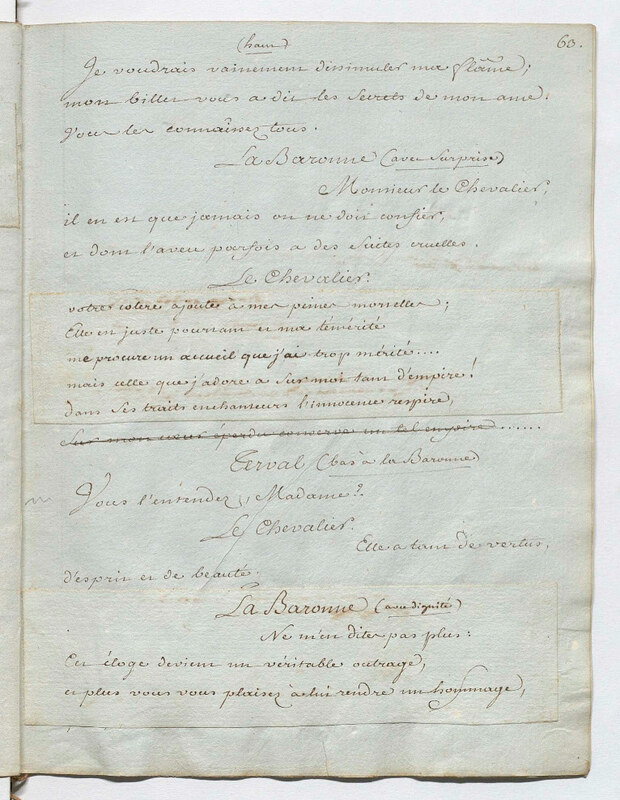 (haut)
63.
Je voudrais vainement dissimuler ma flâme;
mon billet vous a dit les secrets de mon ame.
Vous les connaissez tous.
La Baronne (avec surprise)
Monsieur le Chevalier,
il en est que jamais on ne doit confier,
et dont l'aveu parfois a des suites cruelles.
Le Chevalier.
votre colere ajoute à mes peines mortelles;
Elle est juste pourtant et ma témérité
me procure un accueil que j'ai trop mérité....
mais celle que j'adore a sur moi tant d'empire!
dans ses traits enchanteurs l'innocence respire,
sur mon cœur éperdu conserve un tel empire ......
Terval (bas à la Baronne)
Vous l'entendez, Madame?
Le Chevalier.
Elle a tant de vertus,
d'esprit et de beauté.
La Baronne (avec dignité)
Ne m'en dites pas plus:
Cet éloge devient un véritable outrage,
et plus vous vous plaisez à lui rendre un hommage,